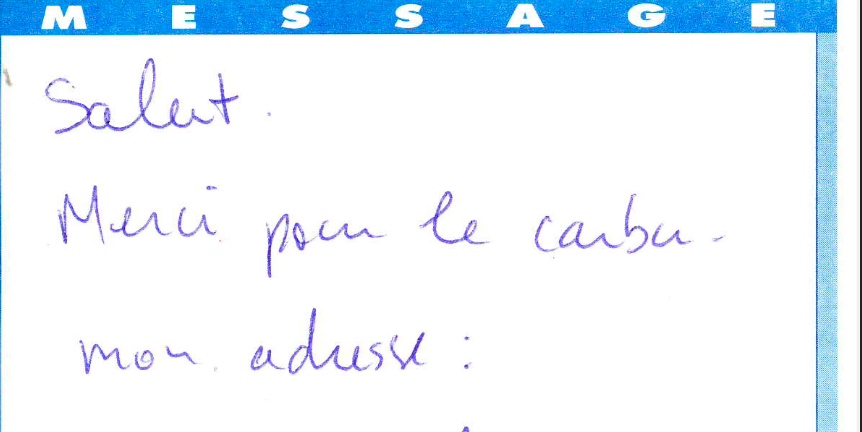 MESSAGE
Salut.
Merci pour le carbu.
mon adresse :